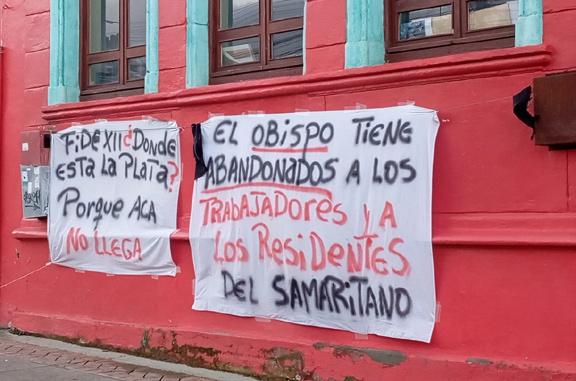 FiDE XII ¿DONDE
ESTA LA PLATA?
PORQUE ACA
NO LLEGA
EL OBISPO TIENE
ABANDONADOS A LOS
TRABAJADORES Y A
LOS RESIDENTES
DEL SAMARITANO